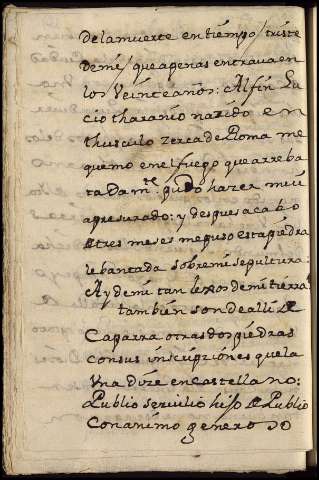 de la muerte en tiempo / triste
de mi / que apenas entraua en
los Veinte años: Al fin Lu
cio tharanio nazido en
thusculo zerca de Roma me
quemo en el fuego que arreba
tadam.te pudo hazer mui
apresurado: y despues acabo
de tres meses me puso esta piedra
lebantada sobre mi sepultura:
Ay de mi tan lexos de mi tierra!
tambien son de alli de
Caparra otras dos piedras
con sus inscripziones que la
Una dize en castellano:
Publio seruilio hijo de Publio
Con animo generoso